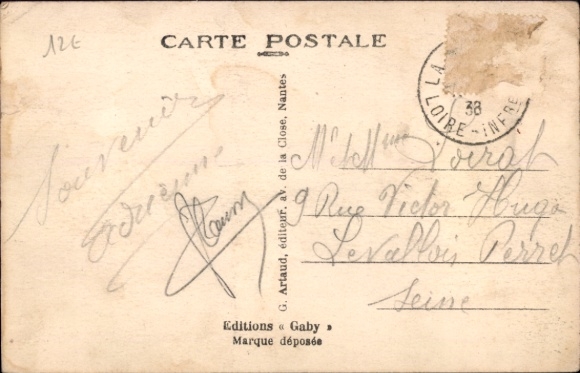 12€
CARTE POSTALE
LA
38
LOIRE-INFRE
Souvenir
G. Artaud, éditeur. av. de la Close, Nantes
Mr et Mme Poirat
9 Rue Victor Hugo
Levallois Perret
Seine
Editions « Gaby »
Marque déposée